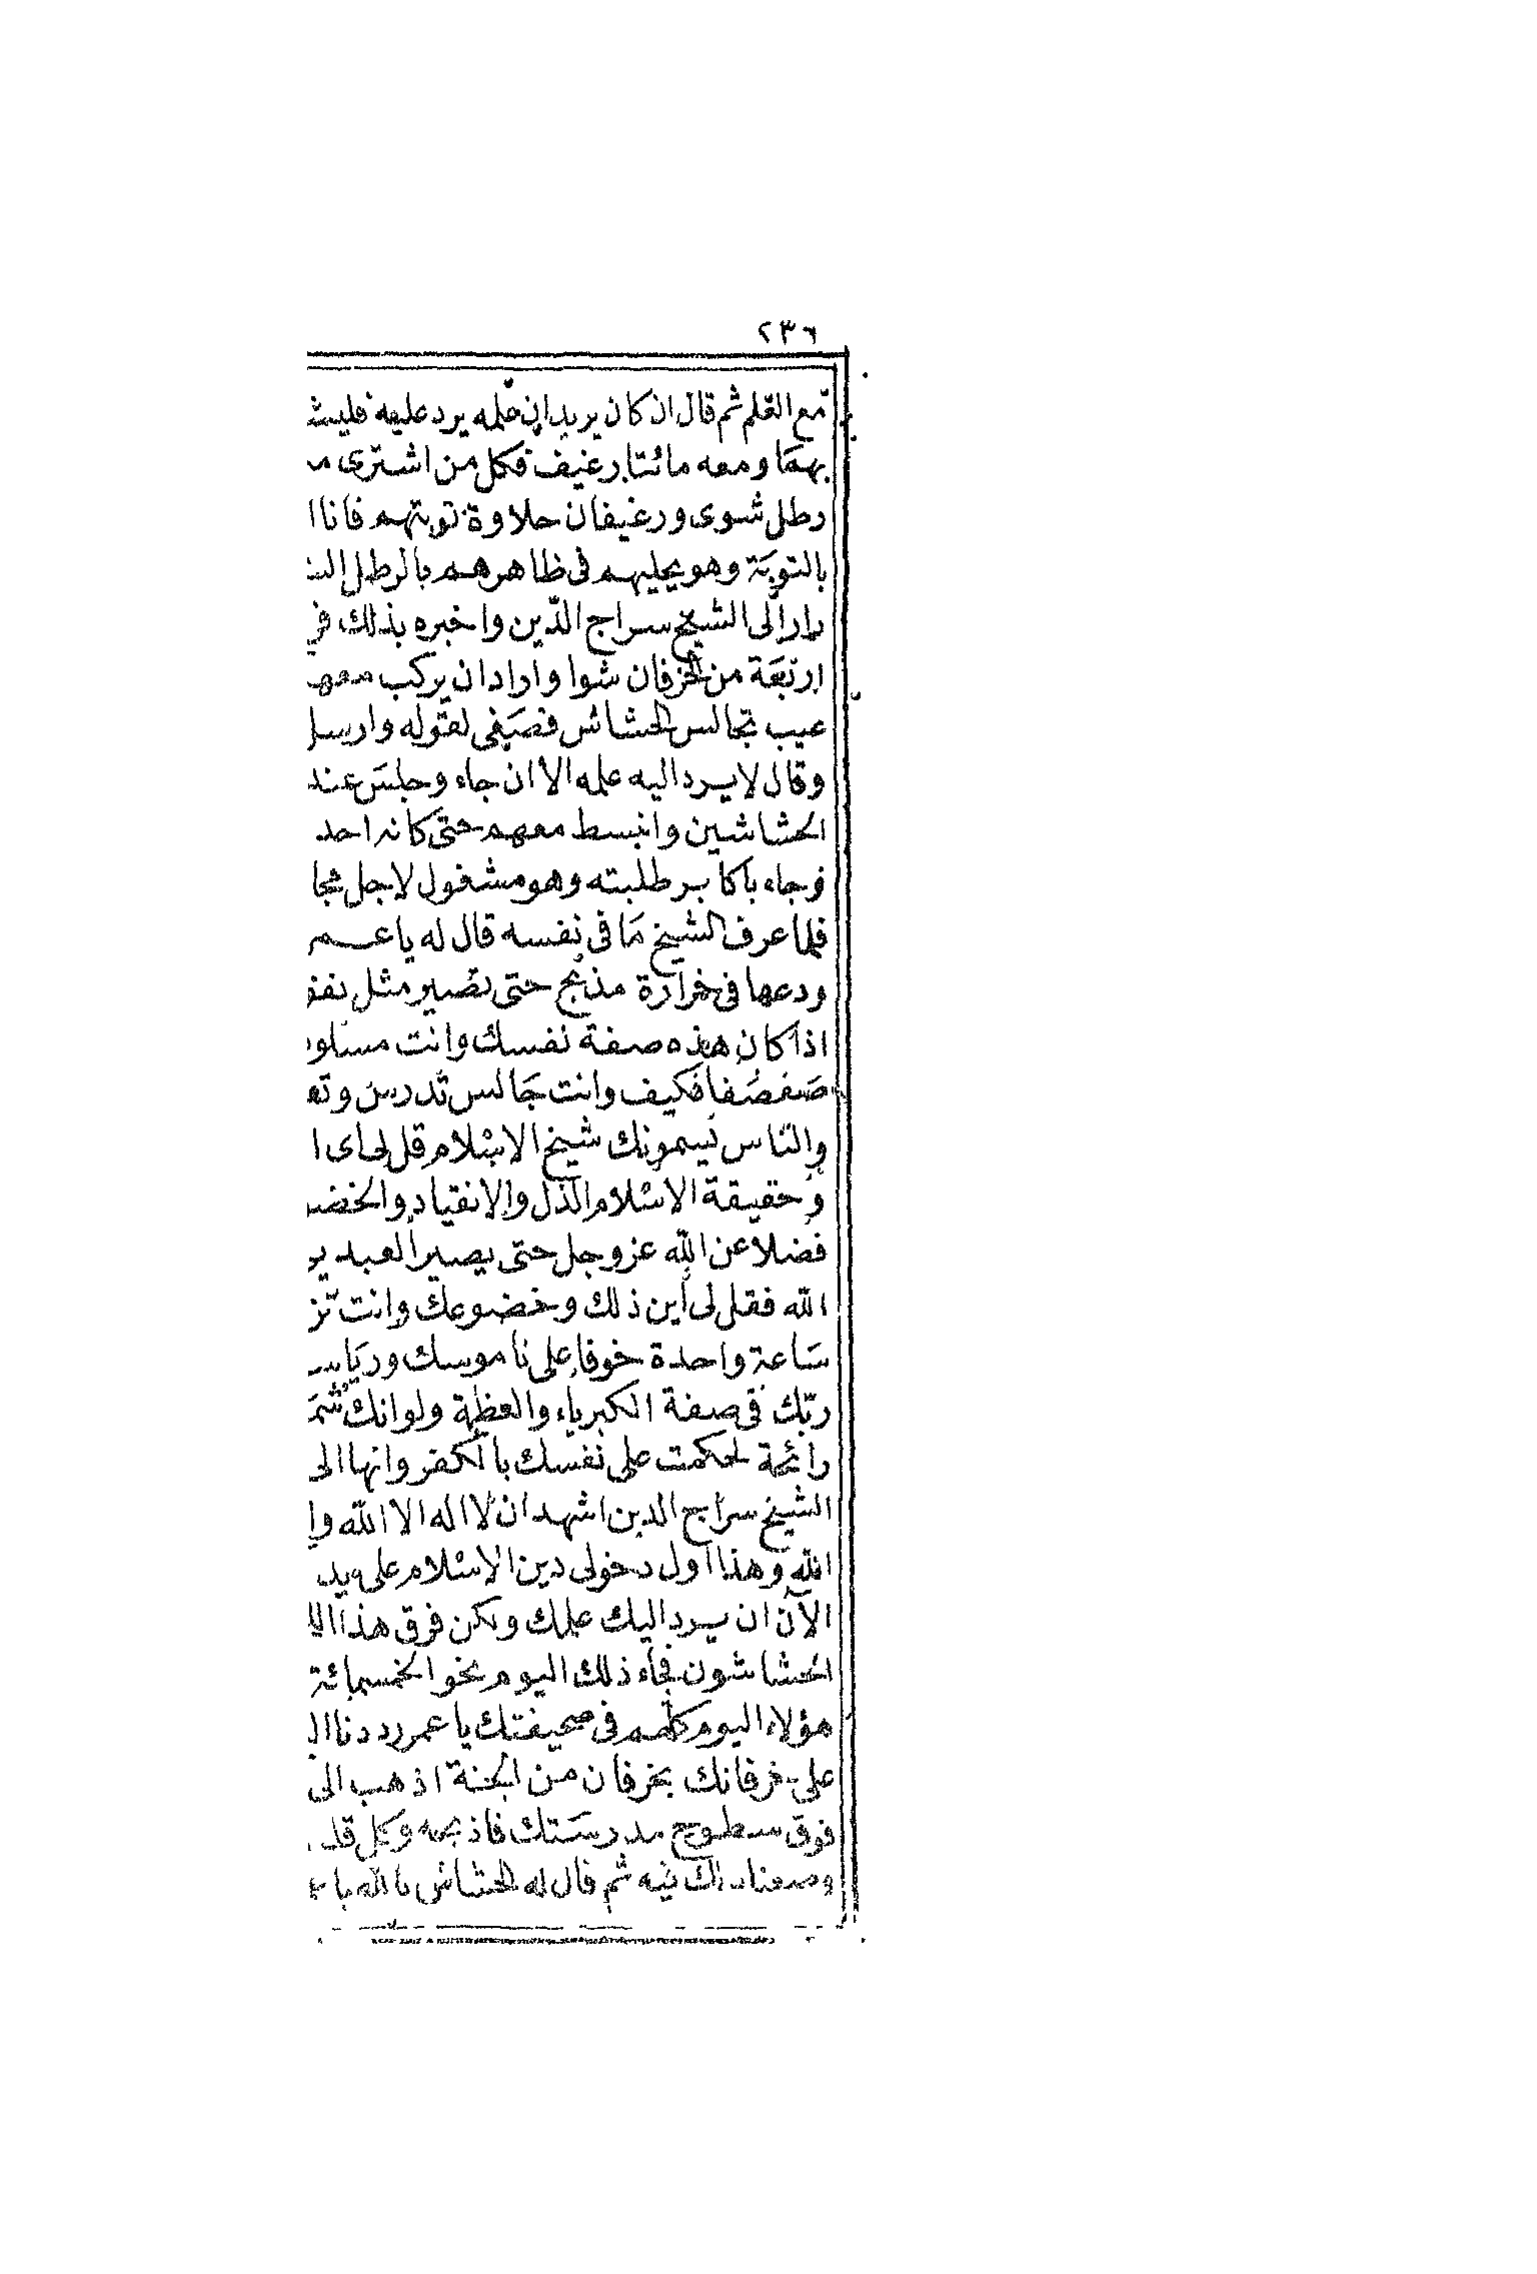 ٢٣٦
مع القلم ثم قال ان كان يريد ان علمه يرد عليه فليشـ
بهما ومعه مائتا رغيف فكل من اشترى مـ
رطل شوى ورغيفان حلاوة توبتهم فانا ا
بالتوبة وهو يحليهم فى ظاهرهم بالرطل الشـ
دار الى الشيخ سراج الدين واخبره بذلك فر
اربعة من الخرفان شوا واراد ان يركب معهـ
عيب تجالس الحشاش فصغى لقوله وارسل
وقال لا يرد اليه علمه الا ان جاء وجلس عند
الحشاشين وانبسط معهم حتى كانه احد
فجاء باكابر طلبته وهو مشغول لاجل مجا
فلما عرف الشيخ ما فى نفسه قال له يا عمر
ودعها فى خرارة مذبح حتى تصير مثل نفـ
اذا كان هذه صفة نفسك وانت مسلو
صفصفا فكيف وانت جالس تدرس وتفـ
والناس يسمونك شيخ الاسلام قل لى اى ا
وحقيقة الاسلام الذل والانقياد والخضـ
فضلا عن الله عز وجل حتى يصير العبد ير
الله فقل لى اين ذلك وخضوعك وانت تز
ساعة واحدة خوفا على ناموسك ورياسـ
ربك فى صفة الكبرياء والعظمة ولو انك شمـ
رائحة لحكمت على نفسك بالكفر وانها الى
الشيخ سراج الدين اشهد ان لا اله الا الله وا
الله وهذا اول دخولى دين الاسلام على يد
الآن ان يرد اليك علمك ولكن فرق هذا الا
الحشاشون فجاء ذلك اليوم نحو الخمسمائة
هؤلاء اليوم كلهم فى صحيفتك يا عمر رددنا الـ
على خرفانك بخرفان من الجنة اذهب الى
فوق سطوح مدرستك فاذبحه وكل قلـ
وضعنا لك فيه ثم قال له الحشاش بالله يا